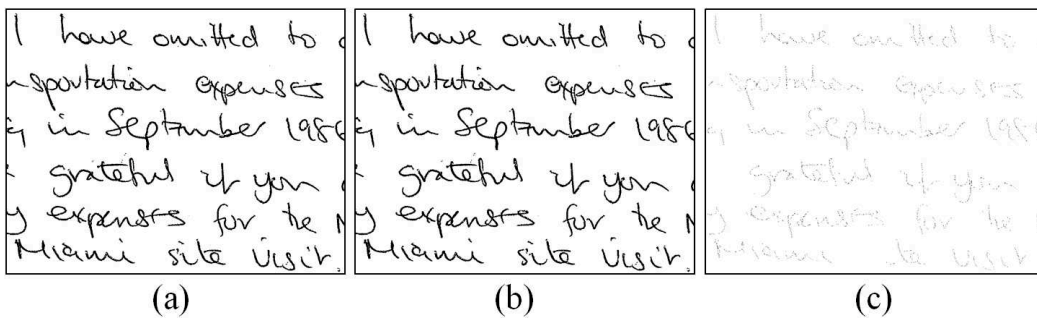 I have omitted to
nsportation expenses
in September 1986
grateful if you
y expenses for the
Miami site visit.
(a)
I have omitted to
nsportation expenses
in September 1986
grateful if you
y expenses for the
Miami site visit.
(b)
I have omitted to
nsportation expenses
in September 1986
grateful if you
y expenses for the
Miami te visit
(c)